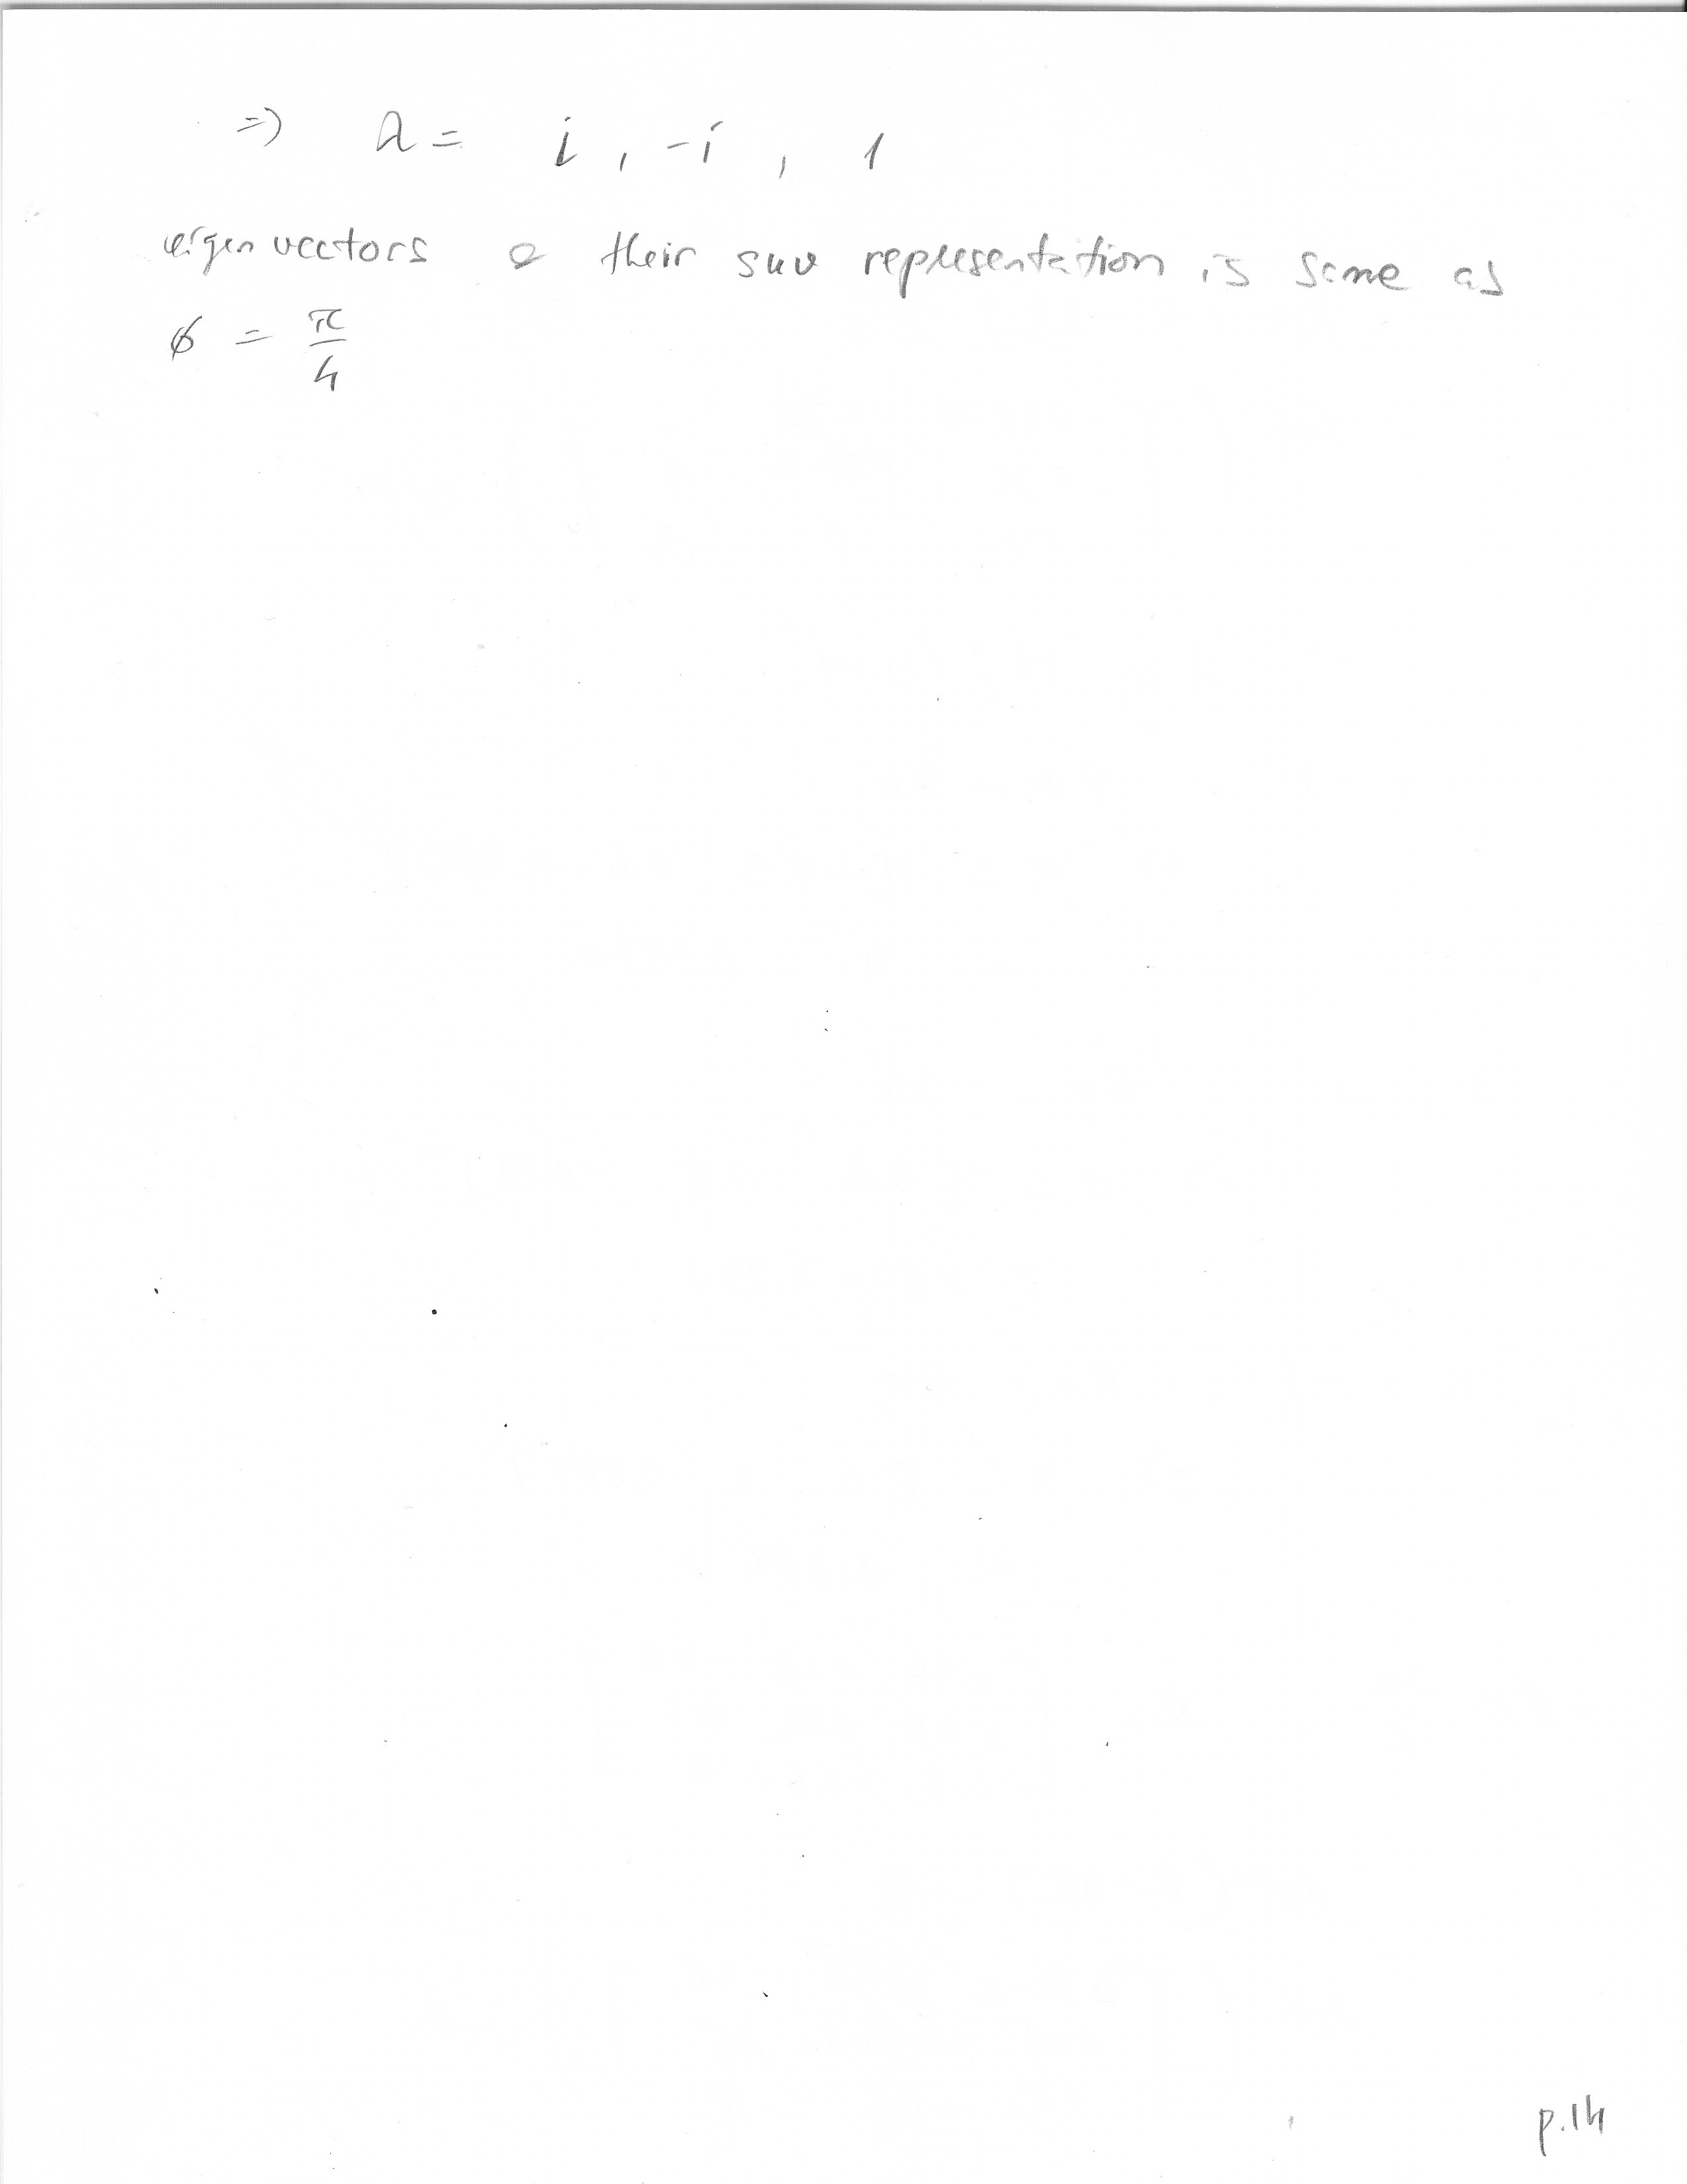 => λ = i , -i , 1
eigen vectors & their suv representation is same as
ϕ = π/4
p.14